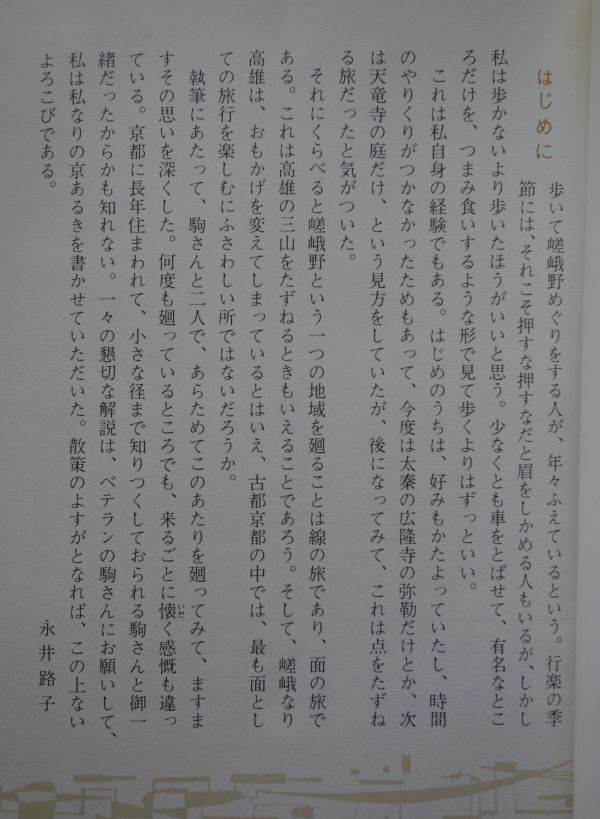 はじめに
歩いて嵯峨野めぐりをする人が、年々ふえているという。行楽の季
節には、それこそ押すな押すなだと眉をしかめる人もいるが、しかし
私は歩かないより歩いたほうがいいと思う。少なくとも車をとばせて、有名なとこ
ろだけを、つまみ食いするような形で見て歩くよりはずっといい。
これは私自身の経験でもある。はじめのうちは、好みもかたよっていたし、時間
のやりくりがつかなかったためもあって、今度は太秦の広隆寺の弥勒だけとか、次
は天竜寺の庭だけ、という見方をしていたが、後になってみて、これは点をたずね
る旅だったと気がついた。
それにくらべると嵯峨野という一つの地域を廻ることは線の旅であり、面の旅で
ある。これは高雄の三山をたずねるときもいえることであろう。そして、嵯峨なり
高雄は、おもかげを変えてしまっているとはいえ、古都京都の中では、最も面とし
ての旅行を楽しむにふさわしい所ではないだろうか。
執筆にあたって、駒さんと二人で、あらためてこのあたりを廻ってみて、ますま
すその思いを深くした。何度も廻っているところでも、来るごとに懐く感慨も違っ
いだ
ている。京都に長年住まわれて、小さな径まで知りつくしておられる駒さんと御一
緒だったからかも知れない。一々の懇切な解説は、ベテランの駒さんにお願いして、
私は私なりの京あるきを書かせていただいた。散策のよすがとなれば、この上ない
よろこびである。
永井路子